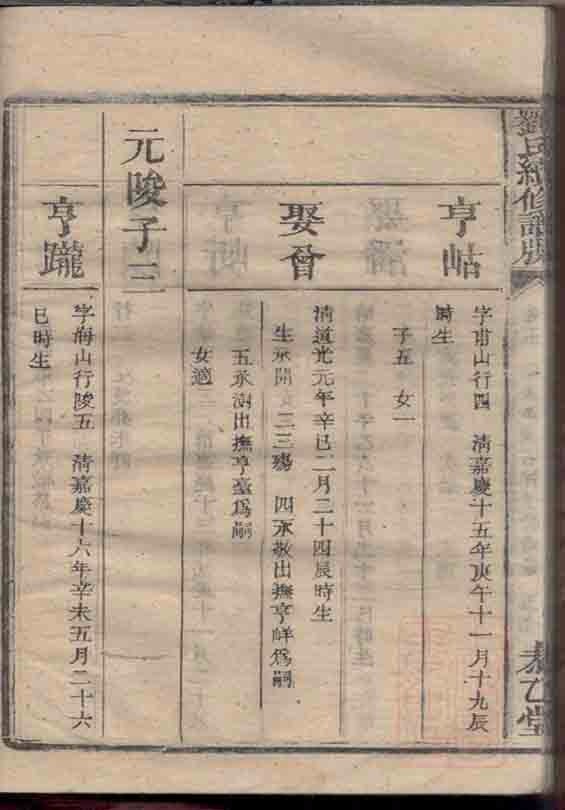 劉氏續修譜牒
乙堂
亨岵
字甫山行四 清嘉慶十五年庚午十一月十九辰
時生
子五 女一
娶曾
清道光元年辛巳二月二十四辰時生
生永開 二三殤 四永敬出撫亨峰爲嗣
五永澍出撫亨臺爲嗣
女適
元陵子三
亨躘
字海山行陵五 清嘉慶十六年辛未五月二十六
巳時生